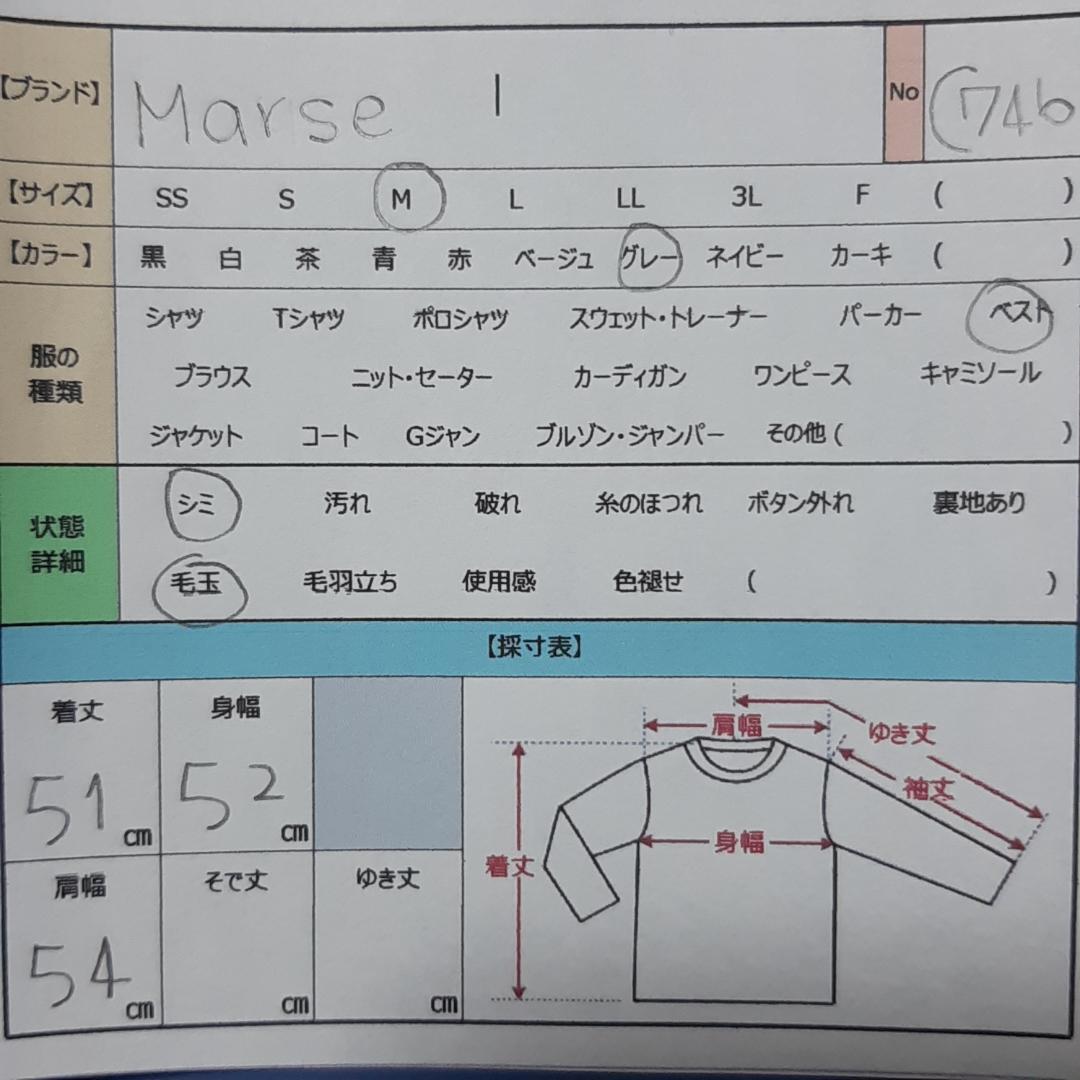 【ブランド】 Marse | No (746
【サイズ】 SS S M L LL 3L F ( )
【カラー】 黒 白 茶 青 赤 ベージュ グレー ネイビー カーキ ( )
服の種類
シャツ Tシャツ ポロシャツ スウェット・トレーナー パーカー ベスト
ブラウス ニット・セーター カーディガン ワンピース キャミソール
ジャケット コート Gジャン ブルゾン・ジャンパー その他 ( )
状態詳細
シミ 汚れ 破れ 糸のほつれ ボタン外れ 裏地あり
毛玉 毛羽立ち 使用感 色褪せ ( )
【採寸表】
着丈 身幅
51 cm 52 cm
肩幅 そで丈 ゆき丈
54 cm cm cm
肩幅 ゆき丈
袖丈
身幅
着丈